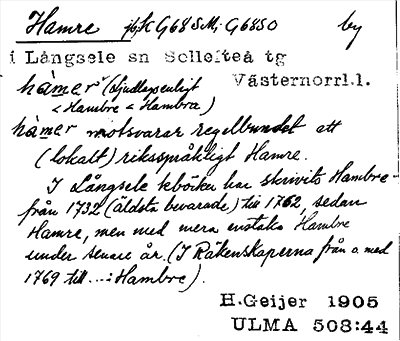 Hamre K G68 SM; G68SO by
i Långsele sn Sollefteå tg
Västernorrl.l.
hàmer (ljudlagsenligt
< Hambre < Hambra)
hàmer motsvarar regelbundet att
(lokalt) riksspråkligt Hamre.
I Långsele kböcker har skrivits Hambre
från 1732 (äldsta bevarade) till 1762, sedan
Hamre, men med mera enstaka Hambre
under senare år. (I Räkenskaperna från o. med
1769 till ...: Hambre).
H.Geijer 1905
ULMA 508:44